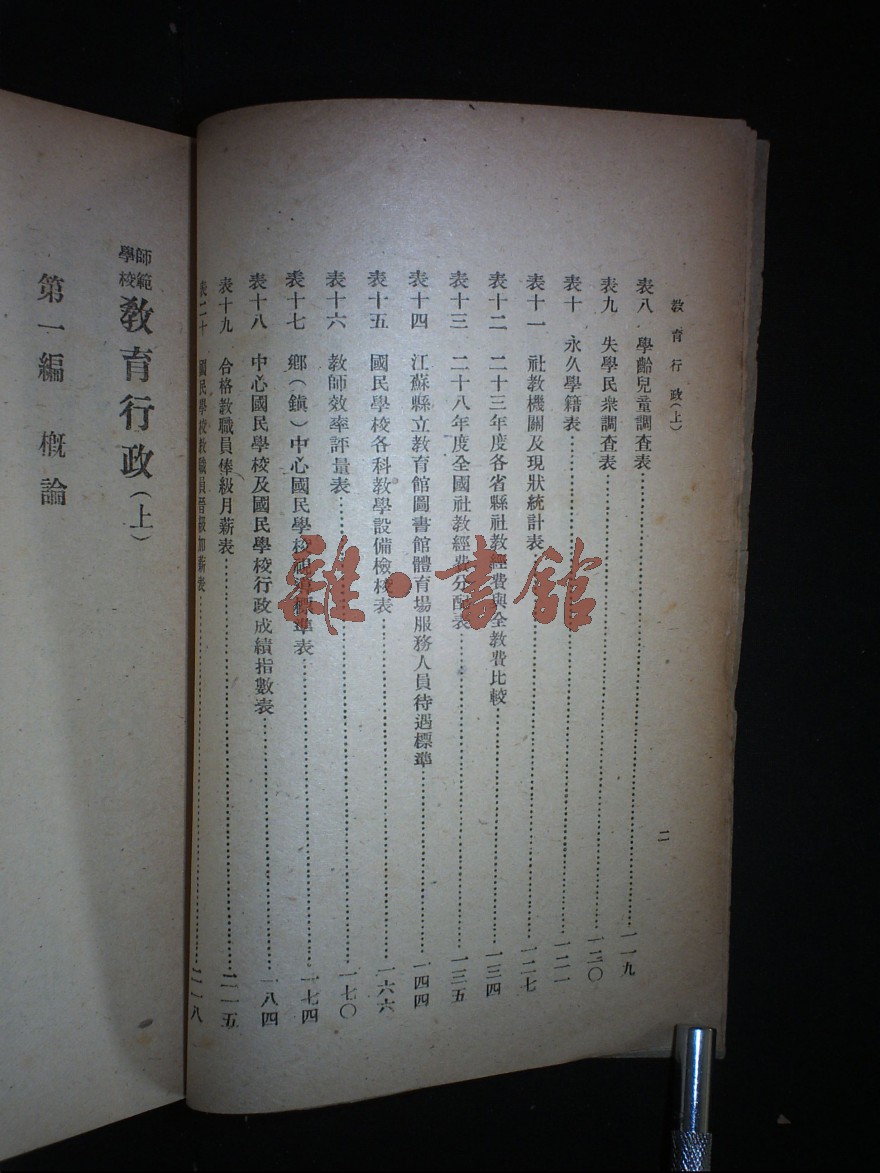 教育行政(上)
二
表八 學齡兒童調查表⋯⋯一一九
表九 失學民衆調查表⋯⋯一二〇
表十 永久學籍表⋯⋯一二一
表十一 社教機關及現狀統計表⋯⋯一二七
表十二 二十三年度各省縣社教經費與全教費比較⋯⋯一三四
表十三 二十八年度全國社教經費分配表⋯⋯一三五
表十四 江蘇縣立教育館圖書館體育場服務人員待遇標準⋯⋯一四四
表十五 國民學校各科教學設備檢核表⋯⋯一六六
表十六 教師效率評量表⋯⋯一七〇
表十七 鄉(鎮)中心國民學校視導標準表⋯⋯一七四
表十八 中心國民學校及國民學校行政成績指數表⋯⋯一八四
表十九 合格教職員俸級月薪表⋯⋯二一五
表二十 國民學校教職員晉級加薪表⋯⋯二一八
師範學校教育行政(上)
第一編 概論
雜·書館